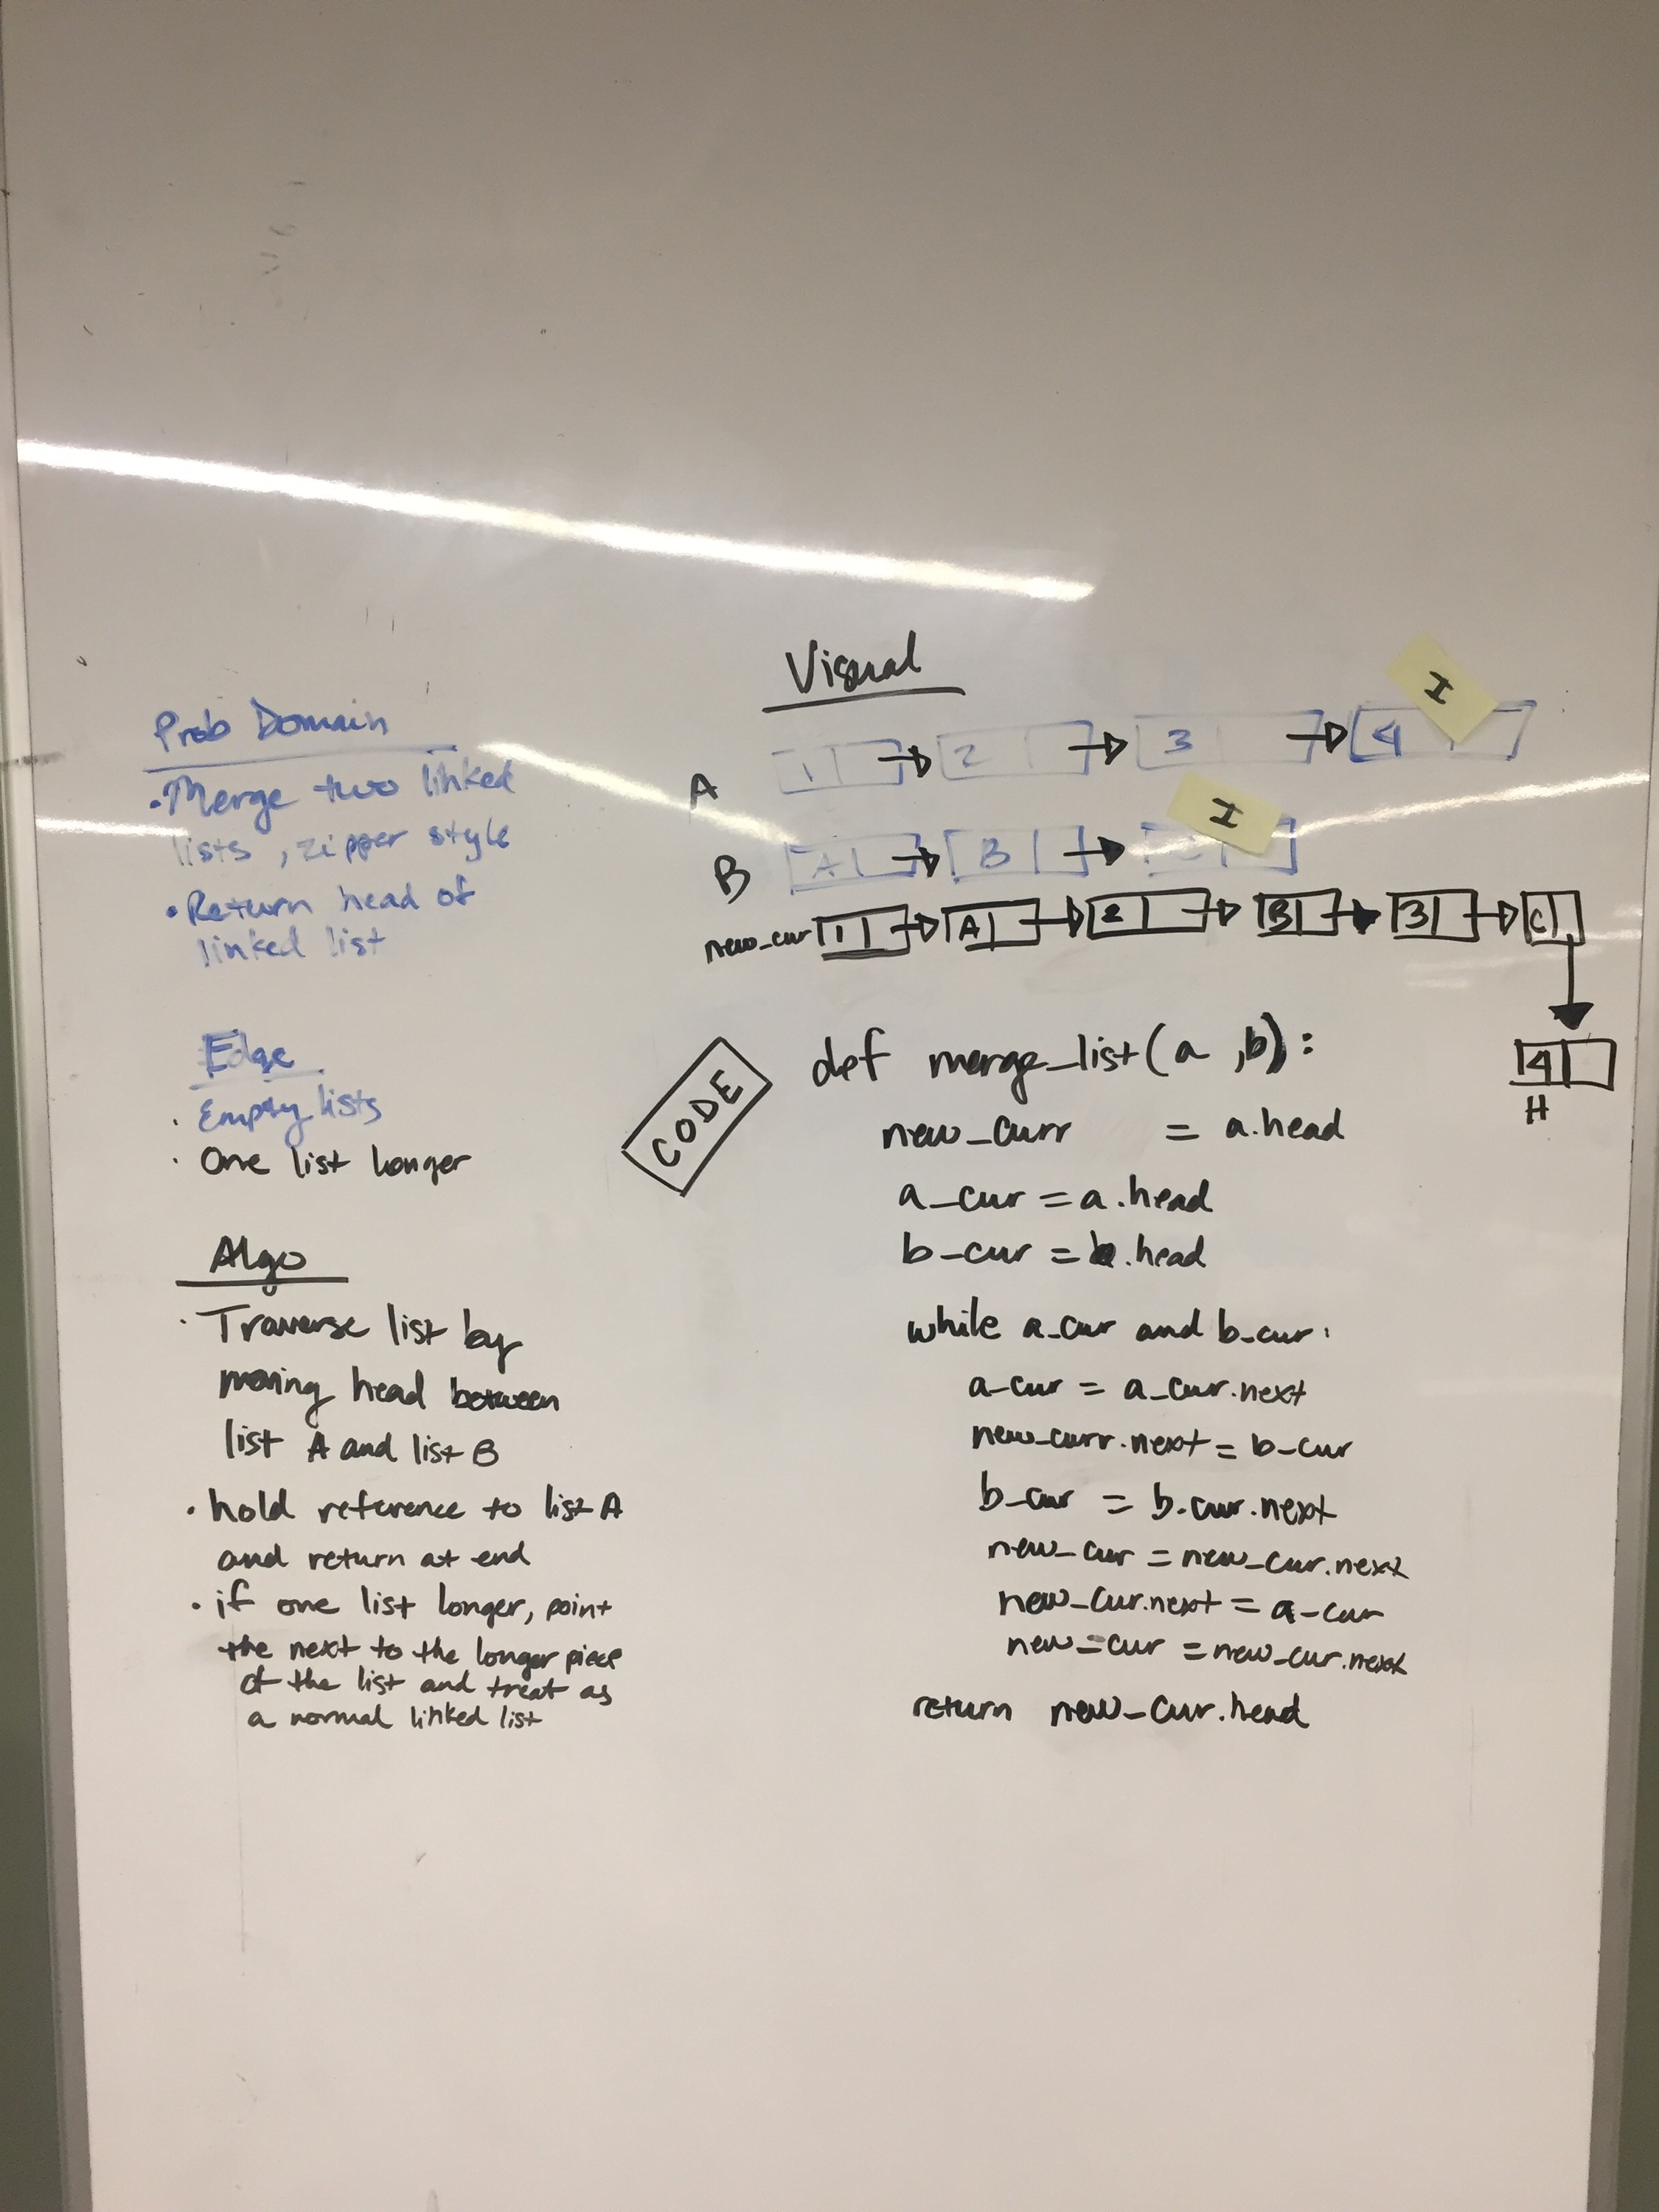 Prob Domain
• Merge two linked
lists, zipper style
• Return head of
linked list
Edge
• Empty lists
• One list longer
Algo
• Traverse list by
moving head between
list A and list B
• hold reference to list A
and return at end
• if one list longer, point
the next to the longer piece
of the list and treat as
a normal linked list
Visual
I
A 1 2 3 4
I
B A B
new_cur 1 A 2 B 3 C
4
H
CODE
def merge_list(a, b):
new_curr = a.head
a_cur = a.head
b_cur = b.head
while a_cur and b_cur:
a_cur = a_cur.next
new_curr.next = b_cur
b_cur = b.cur.next
new_cur = new_cur.next
new_cur.next = a_cur
new_cur = new_cur.next
return new_cur.head